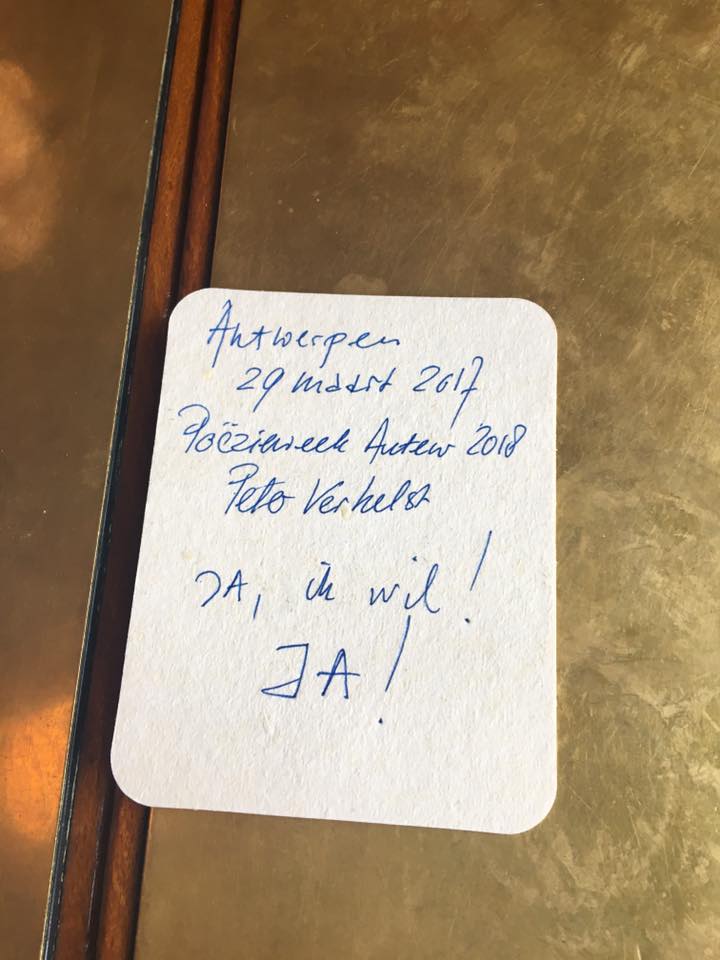 Antwerpen
29 maart 2017
Poëzieweek Auteur 2018
Peter Verhelst
JA, ik wil!
JA!